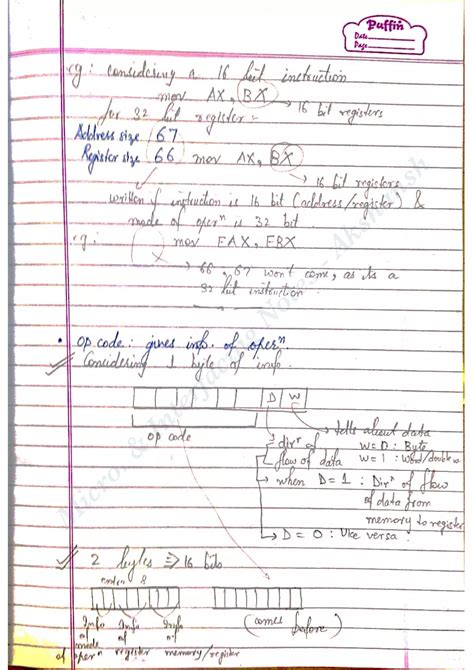 Puffin
Date
Page
eg: considering a 16 bit instruction
mov AX, BX → 16 bit registers
for 32 bit register =
Address size 67
Register size 66 mov AX, BX
→ 16 bit registers
written if instruction is 16 bit (address/register) &
mode of operⁿ is 32 bit.
eg: mov EAX, EBX
→ 66, 67 won't come, as its a
32 bit instruction.
• op code: gives info. of operⁿ
Considering 1 byte of info.
D W
op code
→ tells about data
W = 0 : Byte
W = 1 : Word/double w
→ dirⁿ of
flow of data
→ when D = 1 : Dirⁿ of flow
of data from
memory to register
→ D = 0 : Vice versa.
2 bytes ⇒ 16 bits
Info of mode of operⁿ
Info of register
Info of memory/register
(comes before)
Micro. & Interfacing Notes - Akshaysh